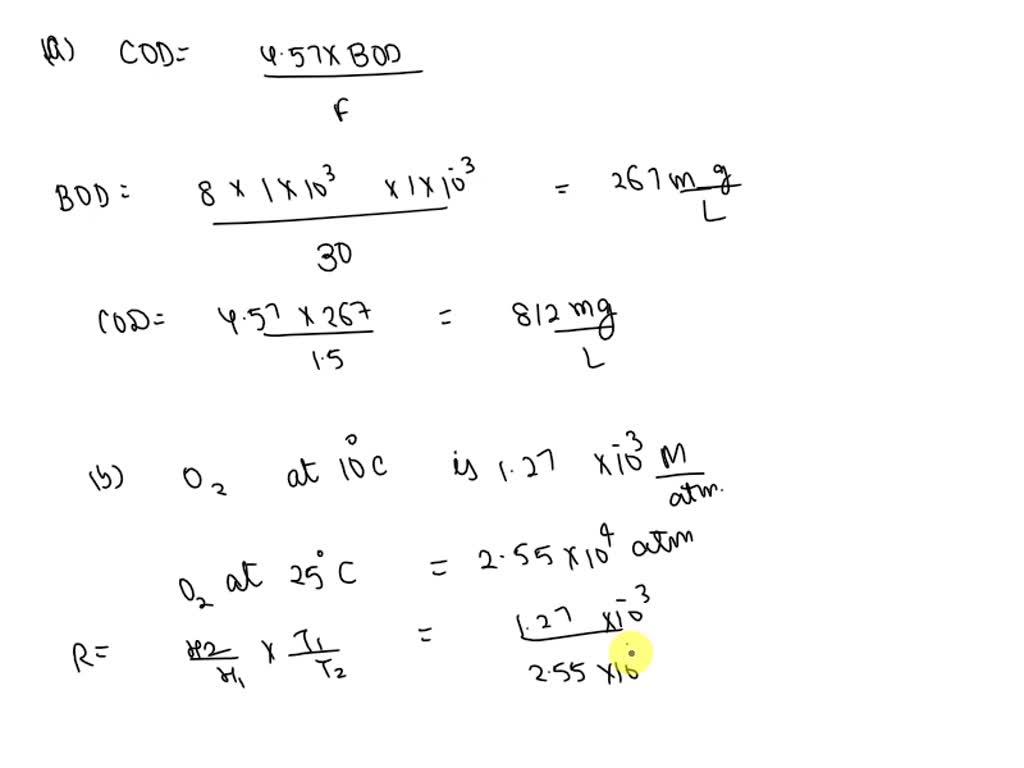 (a) COD= 4.57 x BOD / F
BOD= 8 x 1 x 10³ x 1 x 10⁻³ / 30 = 267 mg / L
COD= 4.57 x 267 / 1.5 = 812 mg / L
(b) O₂ at 10°C is 1.27 x 10⁻³ M / atm.
O₂ at 25°C = 2.55 x 10⁴ atm
R= H2 / H₁ x T₁ / T₂ = 1.27 x 10⁻³ / 2.55 x 10